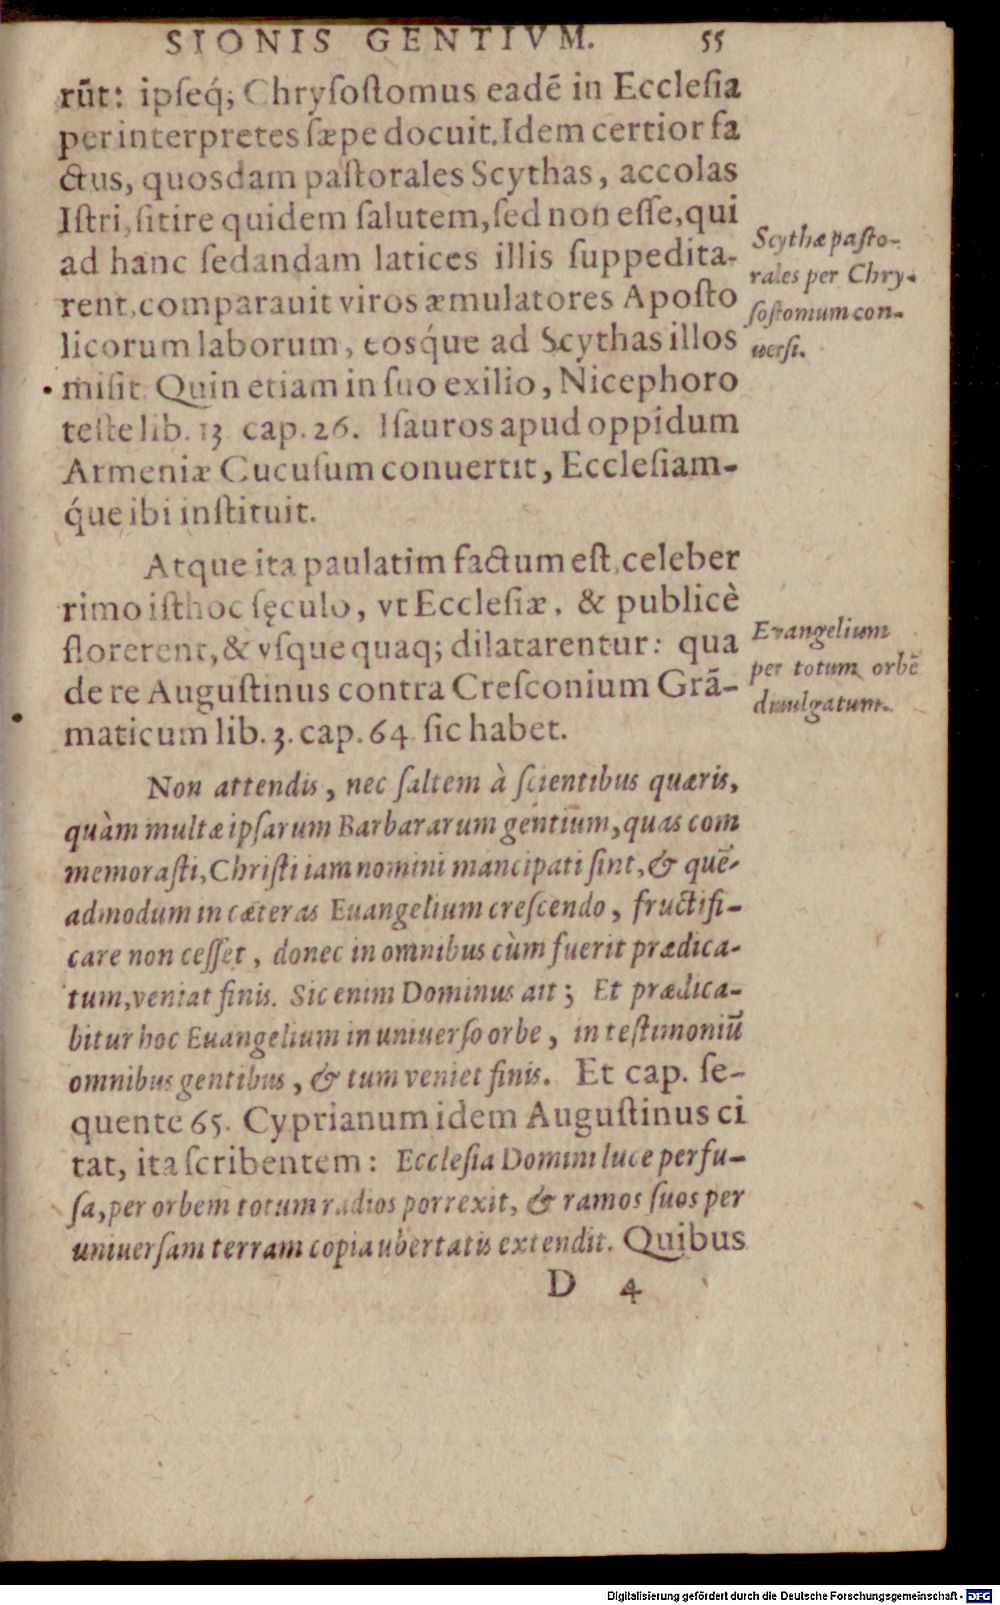 SIONIS GENTIVM. 55
rūt: ipseq́; Chrysostomus eadē in Ecclesia
per interpretes sæpe docuit. Idem certior fa
ctus, quosdam pastorales Scythas, accolas
Istri, sitire quidem salutem, sed non esse, qui
ad hanc sedandam latices illis suppedita-
rent, comparauit viros æmulatores Aposto
licorum laborum, eosq́ue ad Scythas illos
misit. Quin etiam in suo exilio, Nicephoro
teste lib. 13 cap. 26. Isauros apud oppidum
Armeniæ Cucusum conuertit, Ecclesiam-
q́ue ibi instituit.
Scythæ pasto-
rales per Chry-
sostomum con-
uersi.
Atque ita paulatim factum est, celeber
rimo isthoc sęculo, vt Ecclesiæ, & publicè
florerent, & vsque quaq; dilatarentur: qua
de re Augustinus contra Cresconium Grā-
maticum lib. 3. cap. 64 sic habet.
Evangelium
per totum orbē
diuulgatum.
Non attendis, nec saltem à scientibus quæris,
quàm multæ ipsarum Barbararum gentium, quas com
memorasti, Christi iam nomini mancipati sint, & quē-
admodum in cæteras Euangelium crescendo, fructifi-
care non cesset, donec in omnibus cùm fuerit prædica-
tum, veniat finis. Sic enim Dominus ait; Et prædica-
bitur hoc Euangelium in uniuerso orbe, in testimoniū
omnibus gentibus, & tum veniet finis. Et cap. se-
quente 65. Cyprianum idem Augustinus ci
tat, ita scribentem: Ecclesia Domini luce perfu-
sa, per orbem totum radios porrexit, & ramos suos per
uniuersam terram copia ubertatis extendit. Quibus
D 4
Digitalisierung gefördert durch die Deutsche Forschungsgemeinschaft - DFG